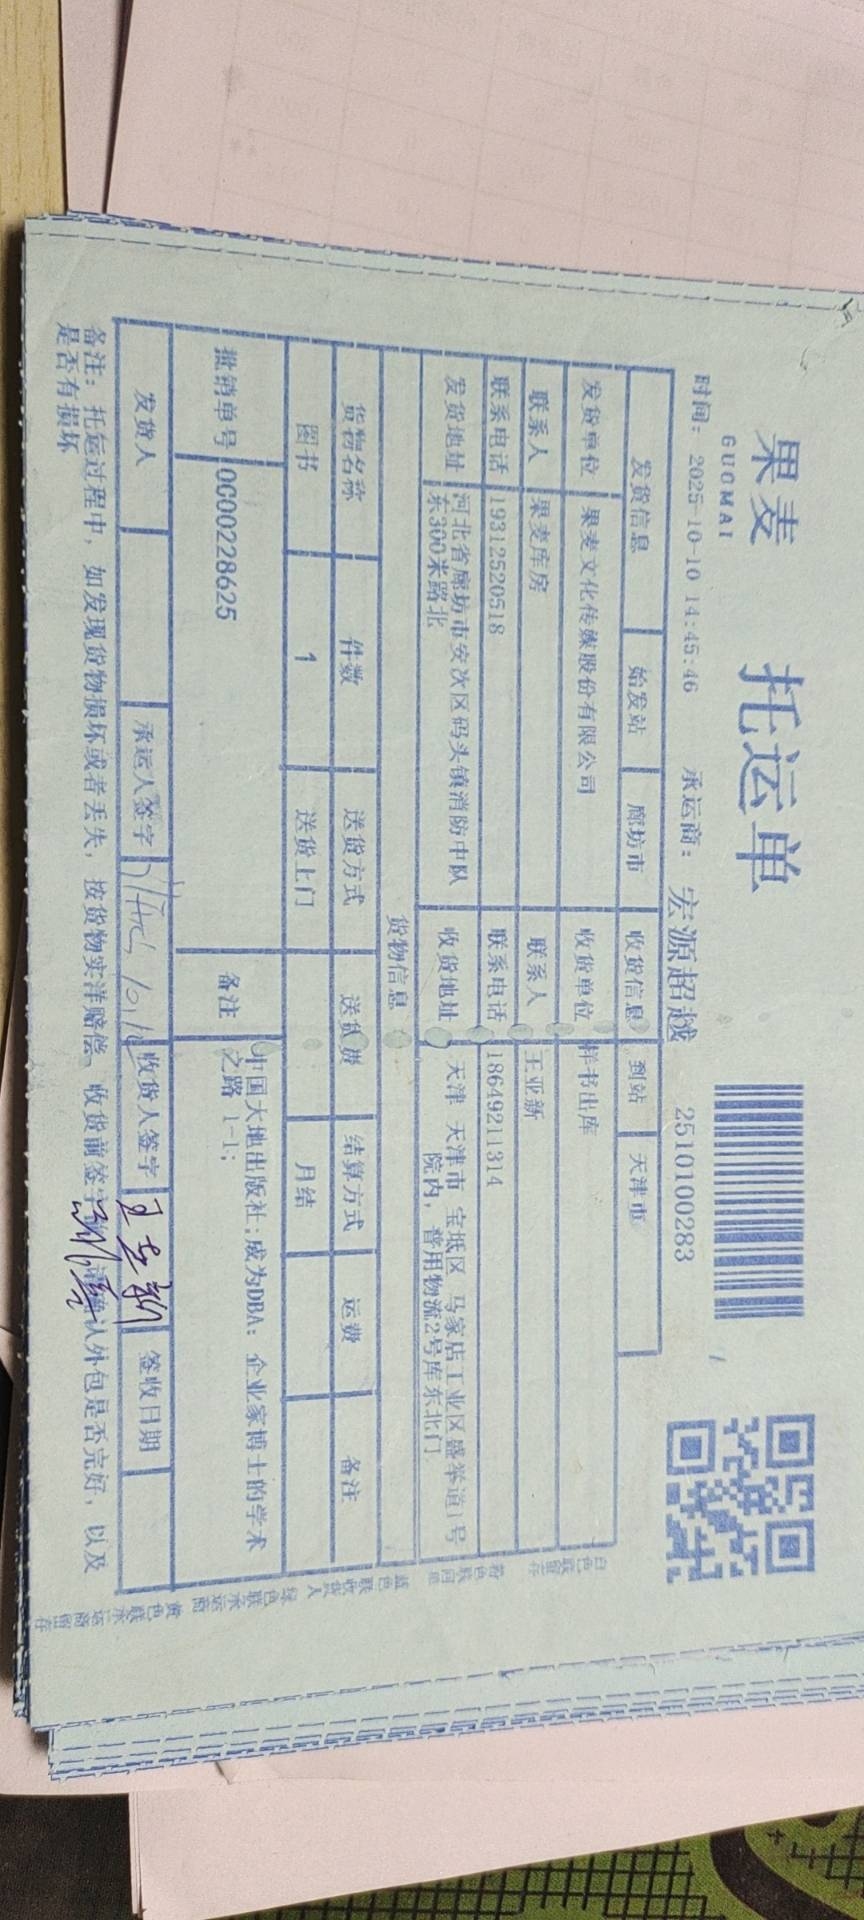 果麦
GUOMAI
托运单
时间：2025-10-10 14:45:46 承运商：宏源超越 2510100283
发货信息 始发站 廊坊市 收货信息 到站 天津市
发货单位 果麦文化传媒股份有限公司 收货单位 样书出库
联系人 果麦库房 联系人 王亚新
联系电话 19312520518 联系电话 18649211314
发货地址 河北省廊坊市安次区码头镇消防中队
东300米路北
收货地址 天津 天津市 宝坻区 马家店工业区盛举道1号
院内，普用物流2号库东北门
货物信息
货物名称 件数 送货方式 送货费 结算方式 运费 备注
图书 1 送货上门 月结
批销单号 0G00228625 备注 中国大地出版社:成为DBA：企业家博士的学术
之路 1-1;
发货人 承运人签字 收货人签字 王亚新 签收日期
备注：托运过程中，如发现货物损坏或者丢失，按货物实洋赔偿，收货前签字 确认外包是否完好，以及
是否有损坏
白色联留存
粉色联回单
蓝色联收货人
绿色联承运商
黄色联承运商留存